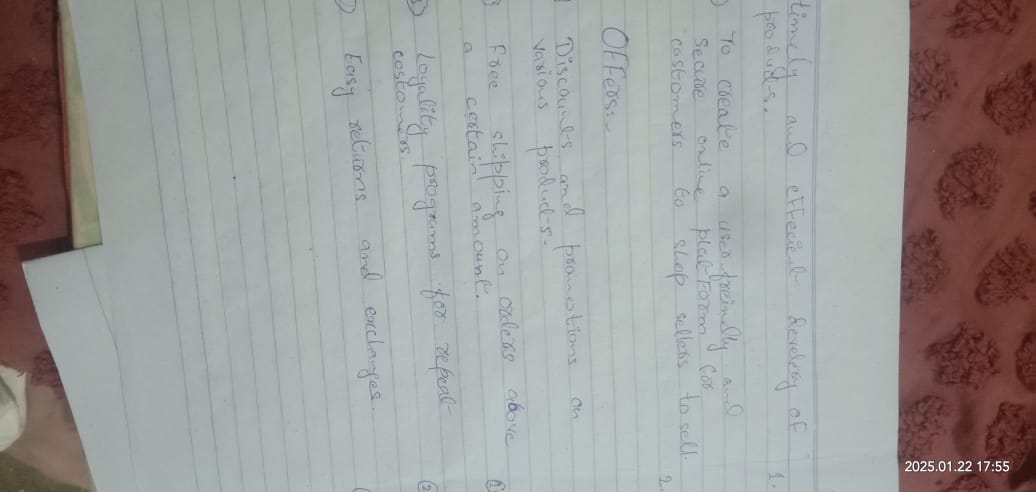 timely and effecient develery of
products.
) To create a user-freinally and
secure online platform for
costomers to shop sellers to sell.
Offers:-
Discounts and promotions on
various products.
) Free shipping on orders above
a certain amount.
3) Loyality programs for repeat
costomers.
) Easy returns and exchanges.
1.
2.
①
②
(
2025.01.22 17:55